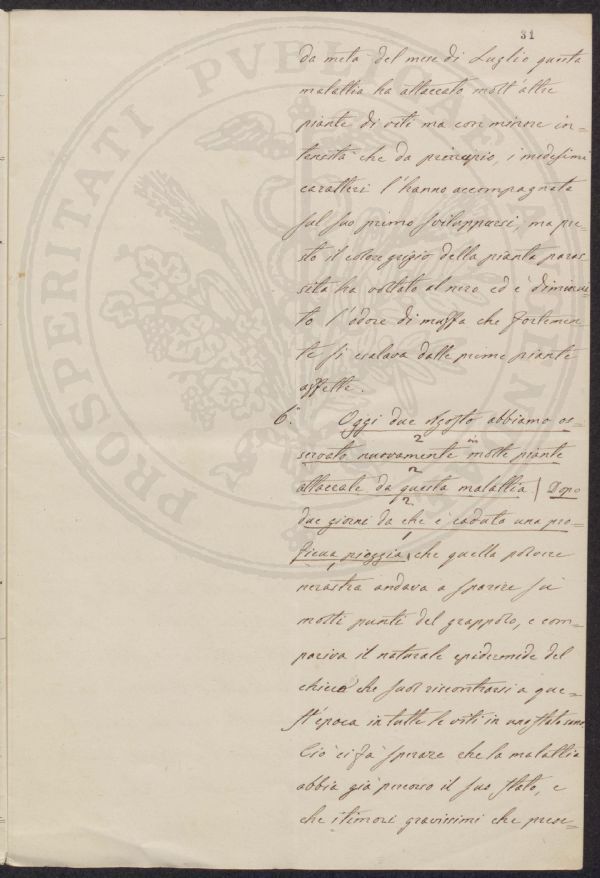 31
da metà del mese di Luglio questa
malattia ha attaccato molt'altre
piante di viti ma con minore in=
tensità che da principio, i medesimi
caratteri l'hanno accompagnata
sul suo primo svilupparsi, ma pre=
sto il colore grigio della pianta paras=
sita ha voltato al nero ed è diminui=
to l'odore di muffa che fortemen=
te si esalava dalle prime piante
affette.
6.° Oggi due Agosto abbiamo os=
servato nuovamente in molte piante
attaccate da questa malattia | Dopo
due giorni da che è caduta una pro=
ficua pioggia, che quella polvere
nerastra andava a sparire su
molti punti del grappolo, e com=
pariva il naturale epidermide del
chicco che suol riscontrarsi a que=
st'epoca in tutte le viti in uno stato sano
Ciò ci fà sperare che la malattia
abbia già percorso il suo stato, e
che i timori gravissimi che prese=
PROSPERITATI PVBLICAE